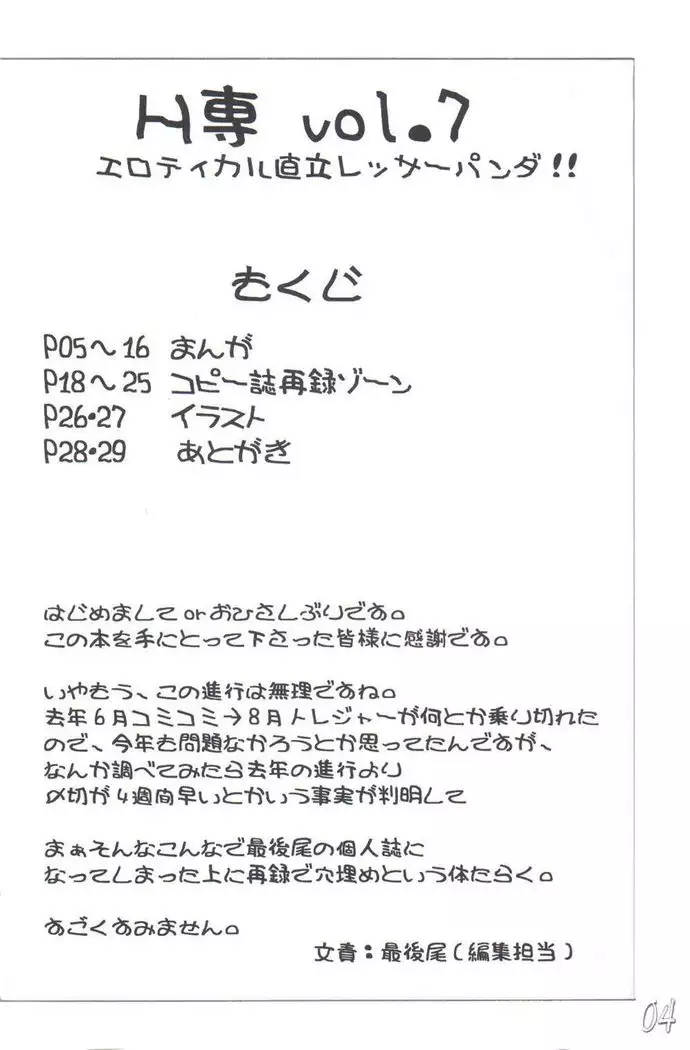 H専 vol.7
エロティカル直立レッサーパンダ!!
もくじ
P05〜16 まんが
P18〜25 コピー誌再録ゾーン
P26・27 イラスト
P28・29 あとがき
はじめましてorおひさしぶりです。
この本を手にとって下さった皆様に感謝です。
いやもう、この進行は無理ですね。
去年6月コミコミ→8月トレジャーが何とか乗り切れた
ので、今年も問題なかろうとか思ってたんですが、
なんか調べてみたら去年の進行より
〆切が4週間早いとかいう事実が判明して
まぁそんなこんなで最後尾の個人誌に
なってしまった上に再録で穴埋めという体たらく。
すごくすみません。
文責:最後尾(編集担当)
04